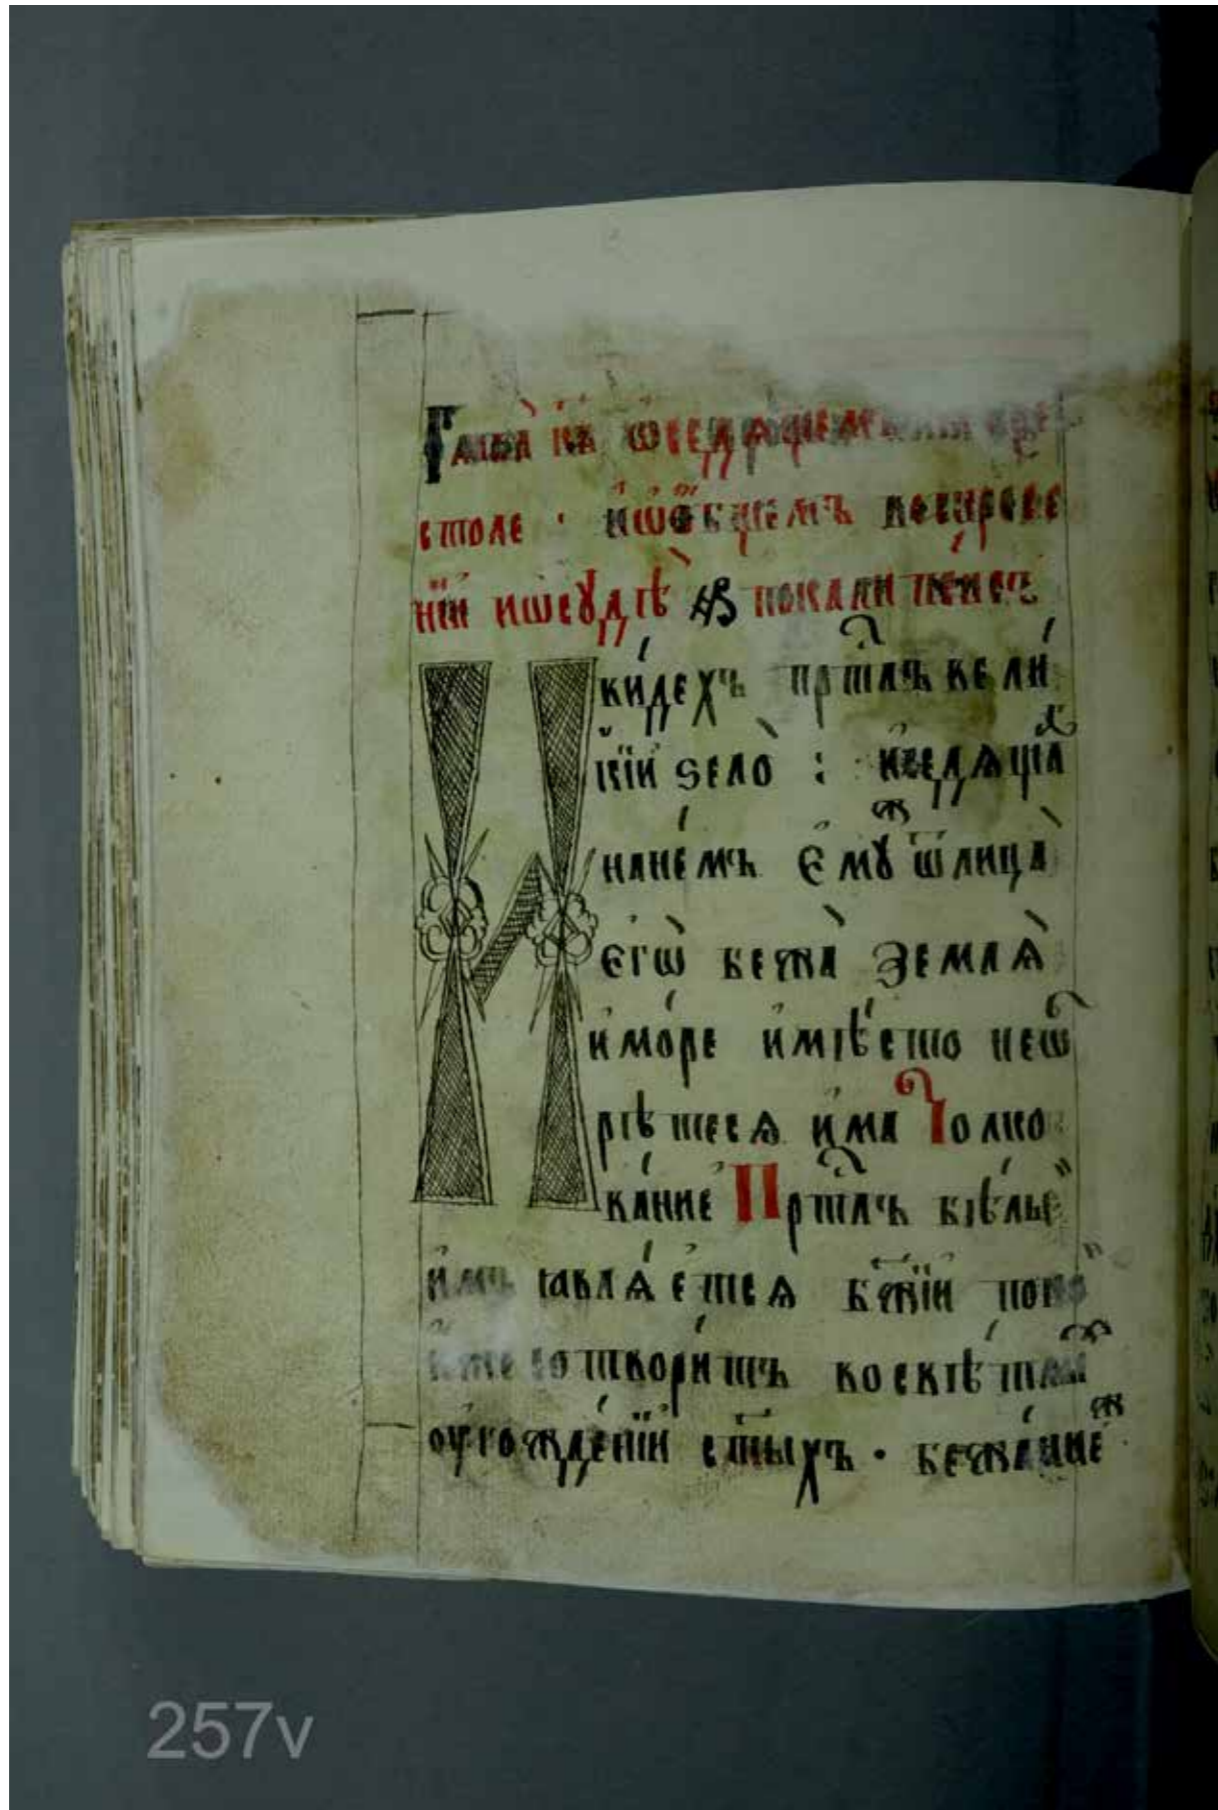 Глава ѯ҃а ѡ седѧщемъ на
столе · и ѡ ѡбщемъ воскресе
нїи и ѡ сѹдѣ в покали псисъ
И видехъ прⷭ҇тлъ вели
кїй ѕело̀ : и седѧщаⷢ҇
на не́мъ є҆мꙋⷤ ѿ лица̀
є҆гѡ̀ бежа̀ землѧ̀
и мо́ре и мѣсто не ѡб
рѣтесѧ и́ма Толко
ва́ние Прⷭ҇тлъ бѣлы
имъ ꙗвлѧ́етсѧ бж҃їи поко
иже сотвори́тъ во свѣтлы
оугожде́нїи ст҃ыхъ · бежа́ниеⷤ
257v